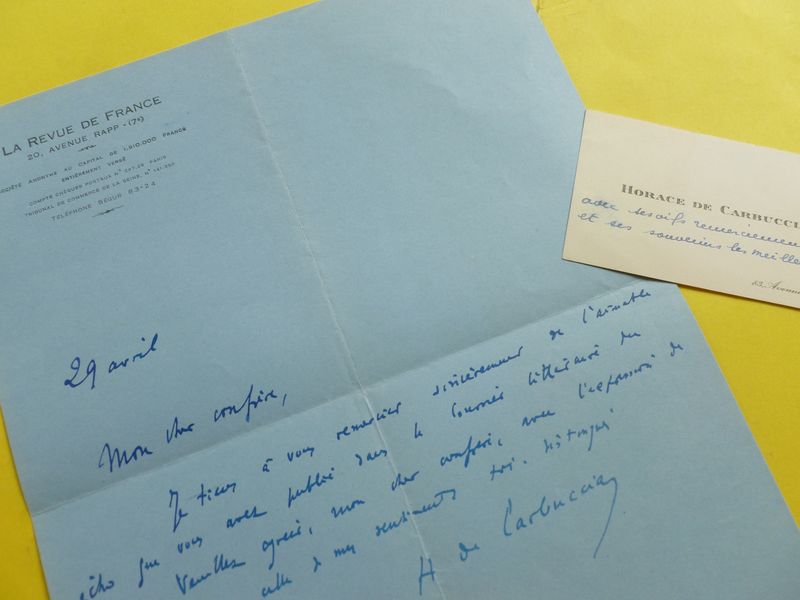 LA REVUE DE FRANCE
20, AVENUE RAPP - (7e)
SOCIÉTÉ ANONYME AU CAPITAL DE 1.910.000 FRANCS
ENTIÈREMENT VERSÉ
COMPTE CHÈQUES POSTAUX N° PARIS
TRIBUNAL DE COMMERCE DE LA SEINE, N°
TÉLÉPHONE SÉGUR 83-24
29 avril
Mon cher confrère,
Je tiens à vous remercier sincèrement de l'aimable
écho que vous avez publié dans le Courrier littéraire du
Veuillez agréer, mon cher confrère, avec l'expression de
de mes sentiments très distingués
H de Carbuccia
HORACE DE CARBUCCI
avec ses vifs remerciemen
et ses souvenirs les meille
Avenue